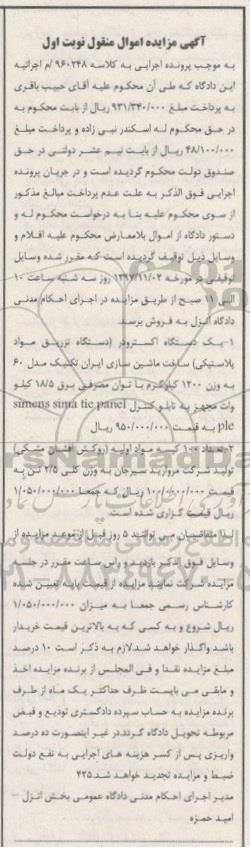 آگهی مزایده اموال منقول نوبت اول
به موجب پرونده اجرایی به کلاسه ۹۶۰۲۴۸ /م اجرائیه
این دادگاه که طی آن محکوم علیه آقای حبیب باقری
به پرداخت مبلغ ۹۳۱/۳۴۰/۰۰۰ ریال از بابت محکوم به
در حق محکوم له اسکندر نبی زاده و پرداخت مبلغ
۴۸/۱۰۰/۰۰۰ ریال از بابت نیم عشر دولتی در حق
صندوق دولت محکوم گردیده است و در جریان پرونده
اجرایی فوق الذکر به علت عدم پرداخت مبالغ مذکور
از سوی محکوم علیه بنا به درخواست محکوم له و
دستور دادگاه از اموال بلامعارض محکوم علیه اقلام و
وسایل ذیل توقیف گردیده است که مقرر شده وسایل
توقیفی در مورخه ۱۳۹۷/۱۱/۰۲ روز سه شنبه ساعت ۱۰
الی ۱۱ صبح از طریق مزایده در اجرای احکام مدنی
دادگاه انزل به فروش برسد.
۱-یک دستگاه اکسترودر (دستگاه تزریق مواد
پلاستیکی) ساخت ماشین سازی ایران تکنیک مدل ۶۰
به وزن ۱۲۰۰ کیلوگرم با توان مصرفی برق ۱۸/۵ کیلو
وات مجهز به تابلو کنترل simens sima tic panel
plc به قیمت ۹۵۰/۰۰۰/۰۰۰ ریال
۲-تعداد ۱۰۰ کیسه مواد اولیه (روکش افشان مشکی)
تولید شرکت مروارید سیرجان به وزن کلی ۲/۵ تن به
قیمت ۱۰۰/۰۰۰/۰۰۰ ریال که جمعا ۱/۰۵۰/۰۰۰/۰۰۰
ریال قیمت گزاری شده است
لذا متقاضیان می توانند ۵ روز قبل از موعد مزایده از
وسایل فوق الذکر بازدید و راس ساعت مقرر در جلسه
مزایده شرکت نمایند مزایده از قیمت پایه تعیین شده
کارشناس رسمی جمعا به میزان ۱/۰۵۰/۰۰۰/۰۰۰
ریال شروع و به کسی که به بالاترین قیمت خریدار
باشد واگذار خواهد شد.لازم به ذکر است ۱۰ درصد
مبلغ مزایده نقدا و فی المجلس از برنده مزایده اخذ
و مابقی می بایست ظرف حداکثر یک ماه از طرف
برنده مزایده به حساب سپرده دادگستری تودیع و قبض
مربوطه تحویل دادگاه گردد.در غیر اینصورت ده درصد
واریزی پس از کسر هزینه های اجرایی به نفع دولت
ضبط و مزایده تجدید خواهد شد.۴۲۵
مدیر اجرای احکام مدنی دادگاه عمومی بخش انزل –
امید حمزه